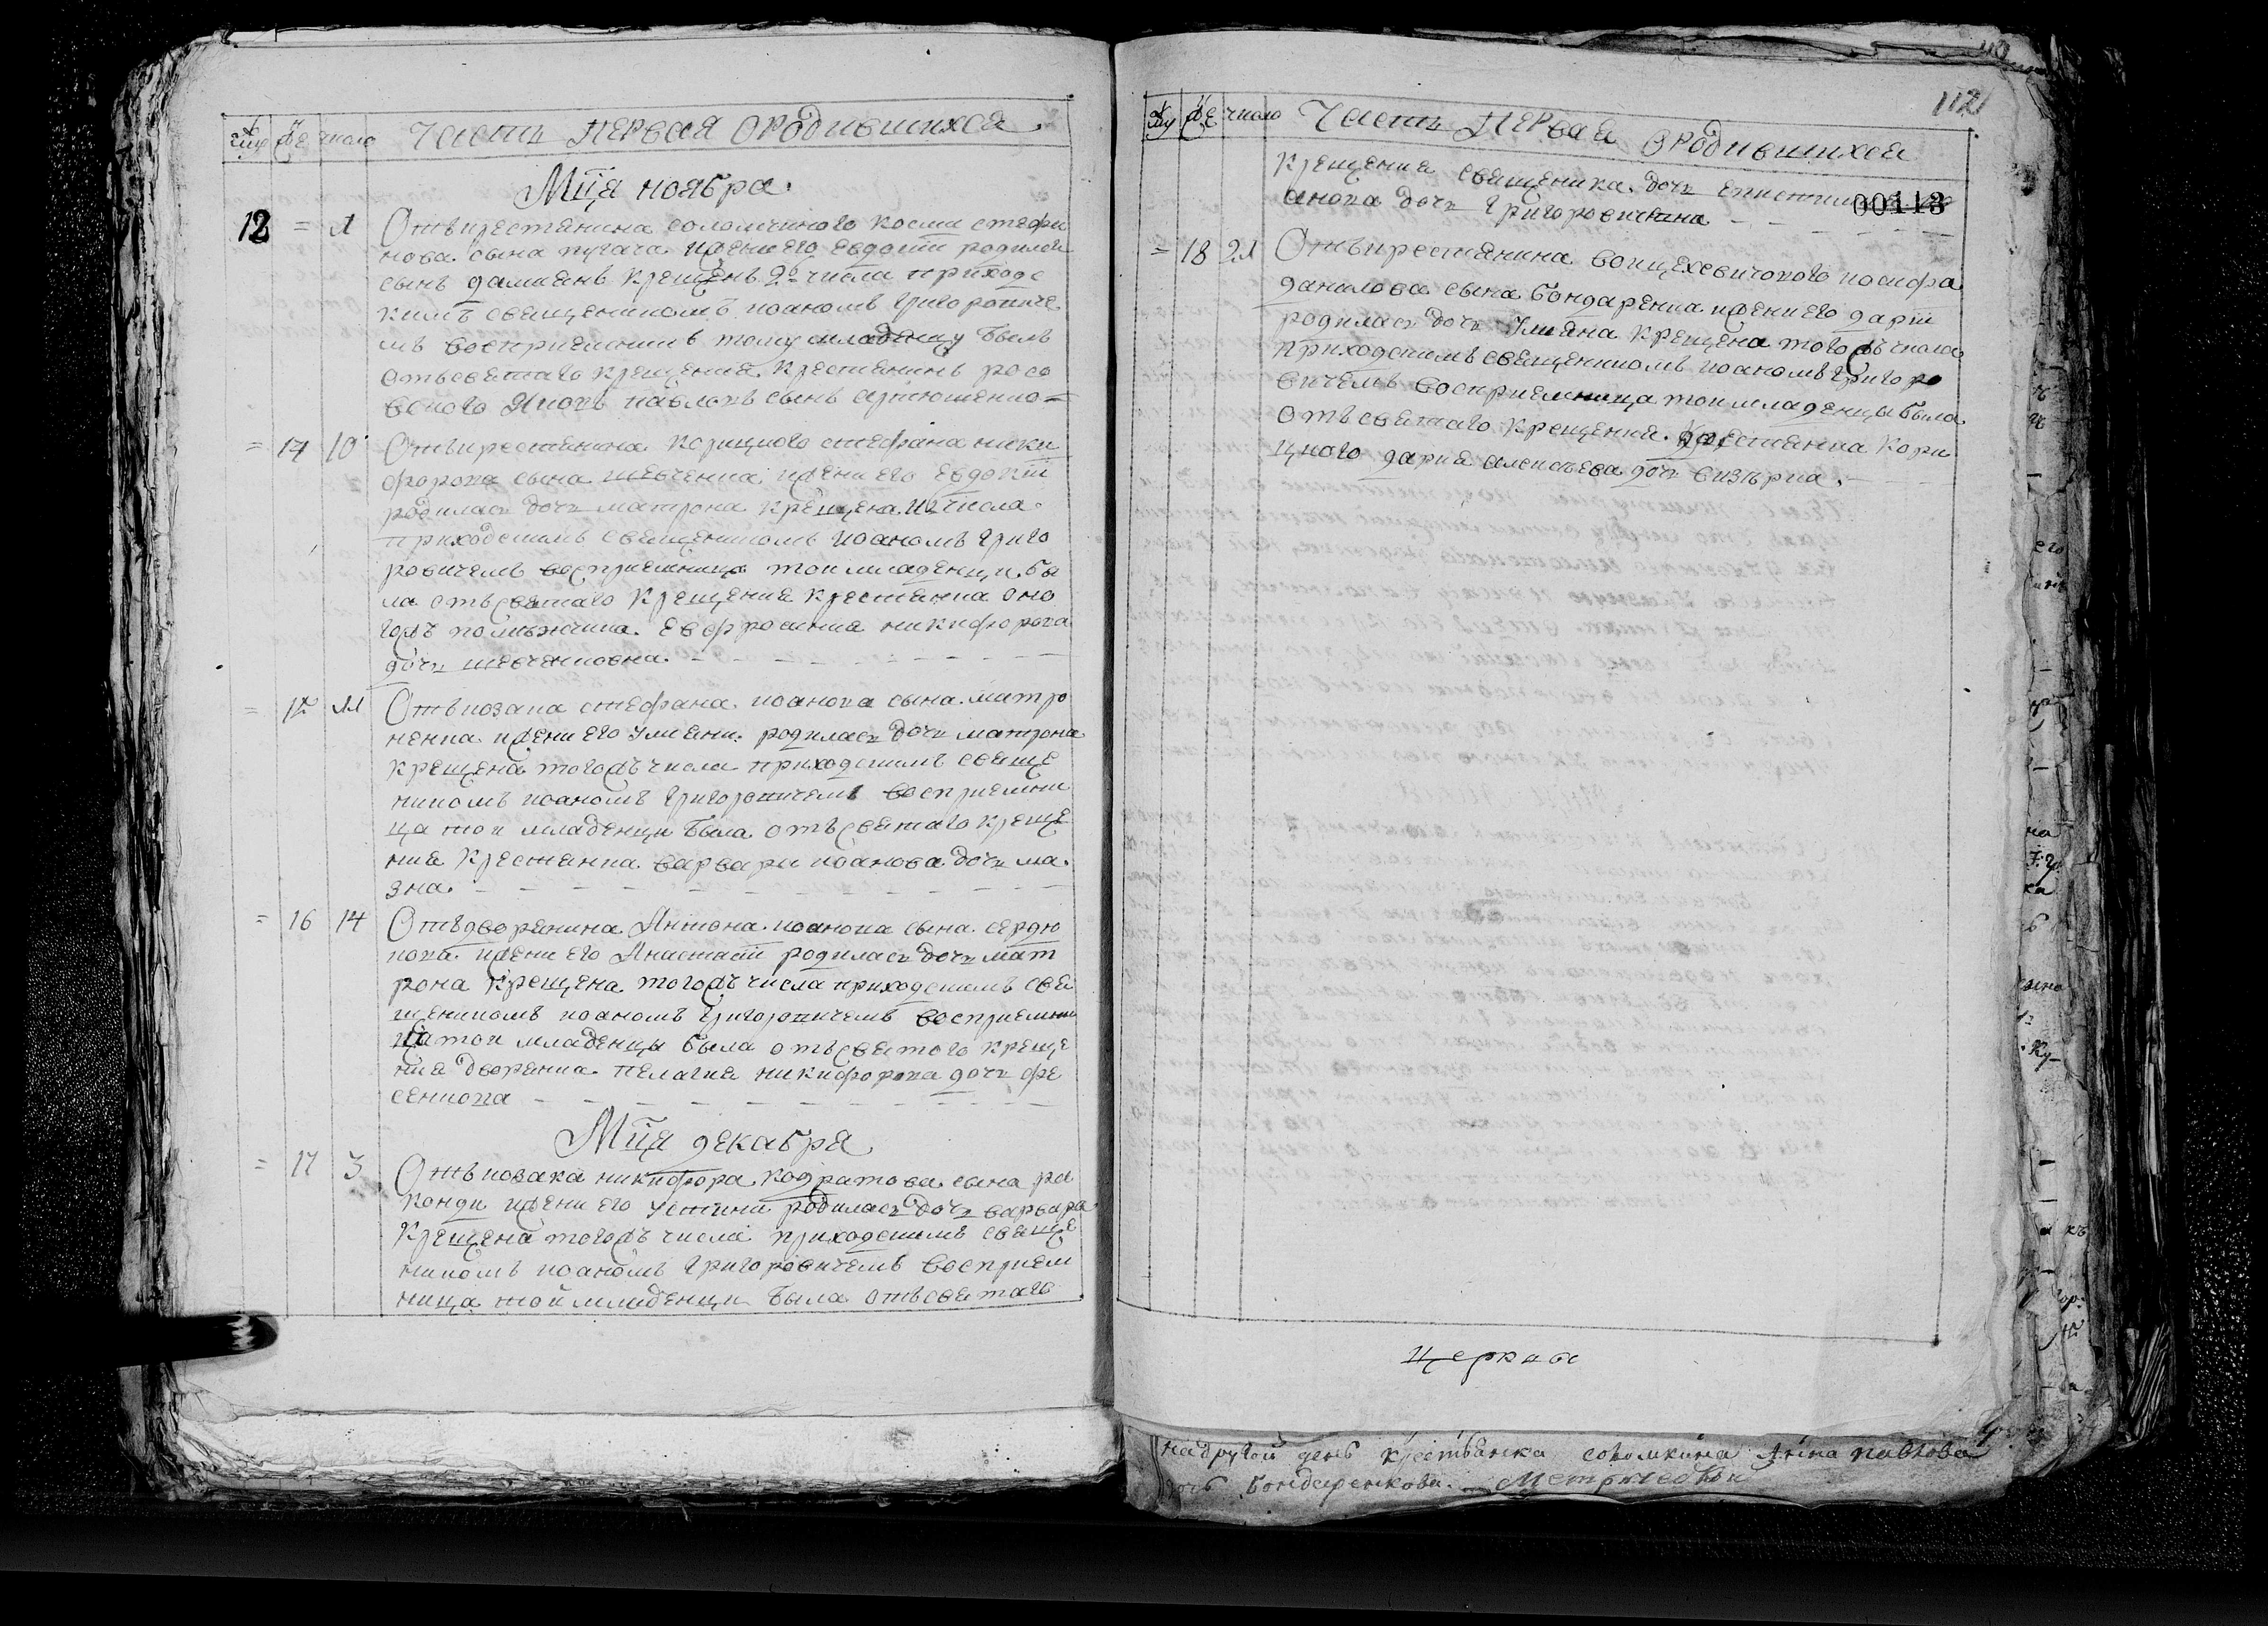 Му Же число Часть первая о родившихся
Мца ноября.
12 = 1 Отъ крестянина соломчиного космы стефа
нова сына пугача. и жени его евдокіи родился
сынъ дамианъ крещенъ 2го числа приходс
кимъ священникомъ иоаномъ григоровиче
мъ восприемникъ тому младенцу былъ
отъ святаго крещения крестянинъ
Яковъ павловъ сынъ
= 14 10 Отъ крестянина корицкого стефана ники
форова сына шевченка и жени его Евдокіи
родилась дочь матрона крещена 11 числа
приходскимъ священникомъ иоаномъ григо
ровичемъ восприемница тои младенци бы
ла отъ святаго крещения крестянка оно
гожъ помѣжчика Евфросиния никифорова
дочь шевченковна.
= 15 11 Отъ козака стефана иоанова сына матро
ненка и жени его улияни родилась дочь матрона
крещена тогожъ числа приходскимъ свяще
никомъ иоаномъ григоровичемъ восприемни
ца тои младенци была отъ святаго креще
ния крестянка варвара иоанова дочь ма
зна.
= 16 14 Отъ дворянина Антона иоанова сына сердю
кова и жени его Анастасіи родилась дочь мат
рона крещена тогожъ числа приходскимъ свя
щеникомъ иоаномъ григоровичемъ восприемни
ца тои младенцы была отъ святого креще
ния дворянка пелагия никифорова дочь фе
сенкова
Мца декабря
= 17 3 Отъ козака никифора кодратова сына ра
конди и жени его устини родилась дочь варвара
крещена тогожъ числа приходскимъ свяще
никомъ иоаномъ григоровичемъ восприем
ница той младенци была отъ святаго
112
Му Же число Часть первая о родившихся
крещения священика дочь
анова дочь григоровичівна
00113
= 18 21 Отъ крестянина войцеховичового иосифа
данилова сына бондаренка и жени его дарїи
родилась дочь улияна крещена тогожъ числа
приходскимъ священникомъ иоаномъ григоро
вичемъ восприемница тои младенцы была
отъ святаго крещения. крестянка кори
цкого дария алексѣева дочь
церкви
на другой день крестьянка соломкина Анна павлова
дочь бондаренкова. Метрической